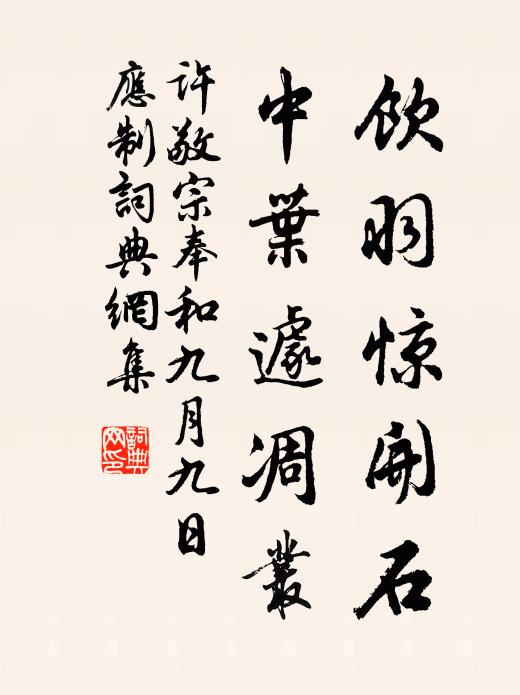 饮羽惊開石
中葉遽凋叢
许敬宗奉和九月九日
應制詞典網集
詞典
网印